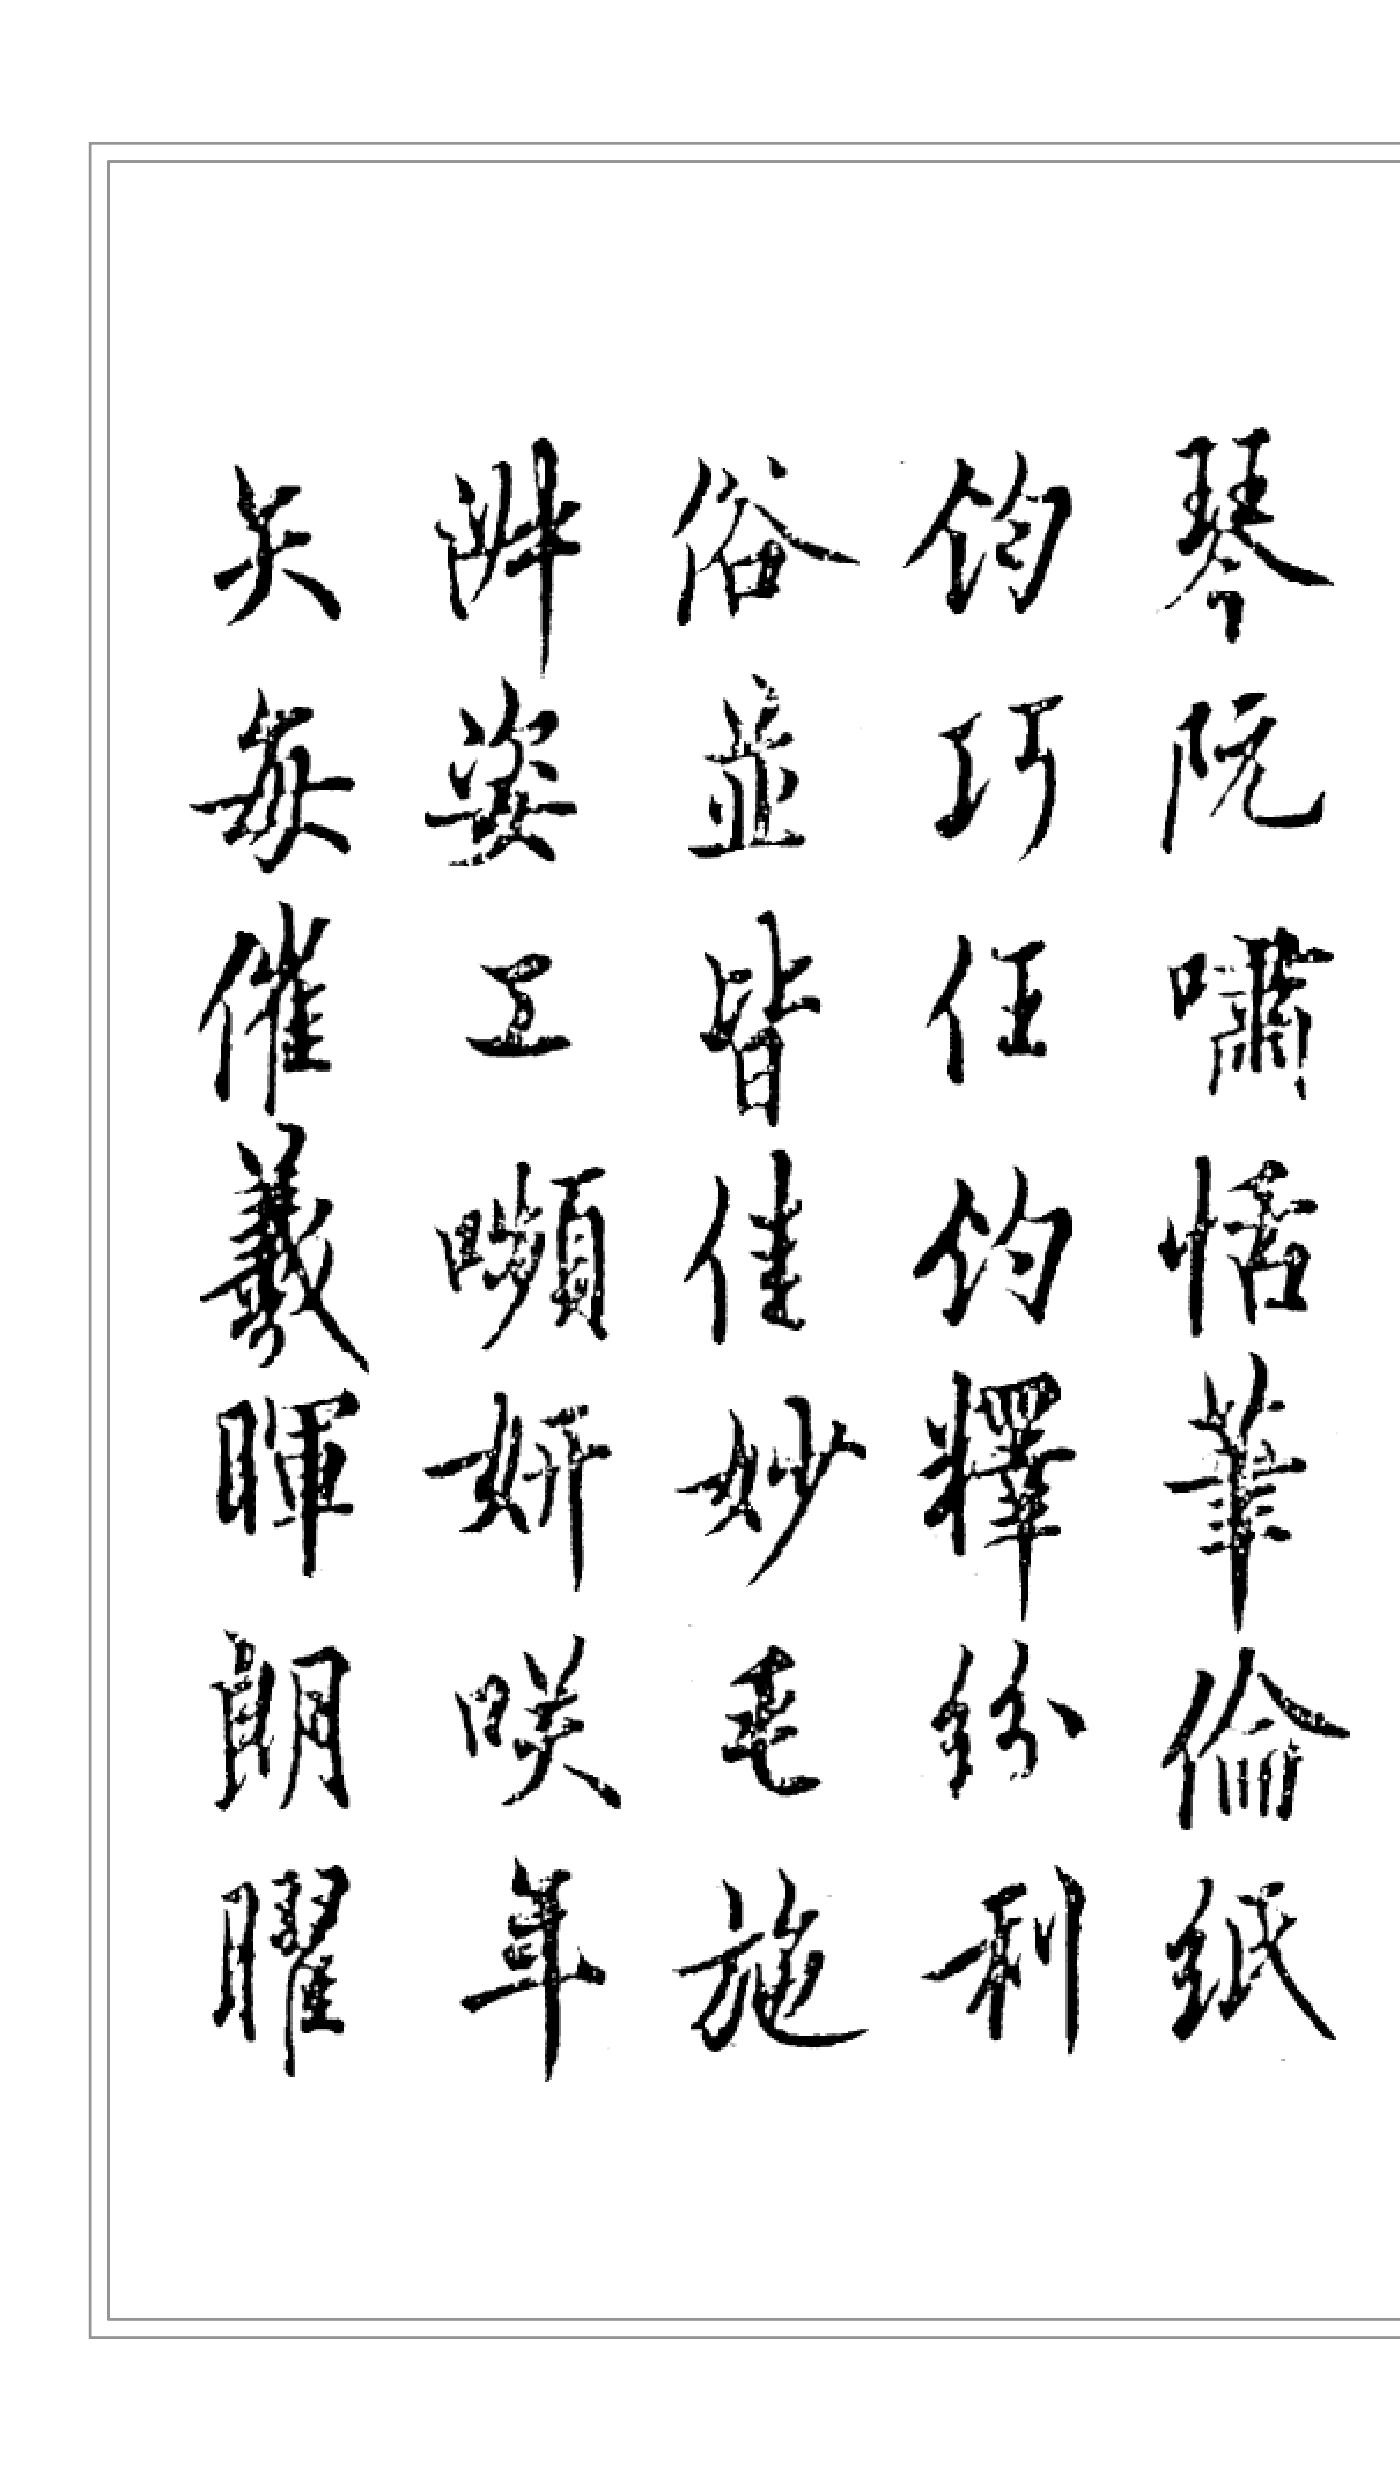 琴阮嘯恬筆倫紙
鈞巧任鈞釋紛利
俗並皆佳妙毛施
淑姿工嚬妍咲年
矢每催羲暉朗曜